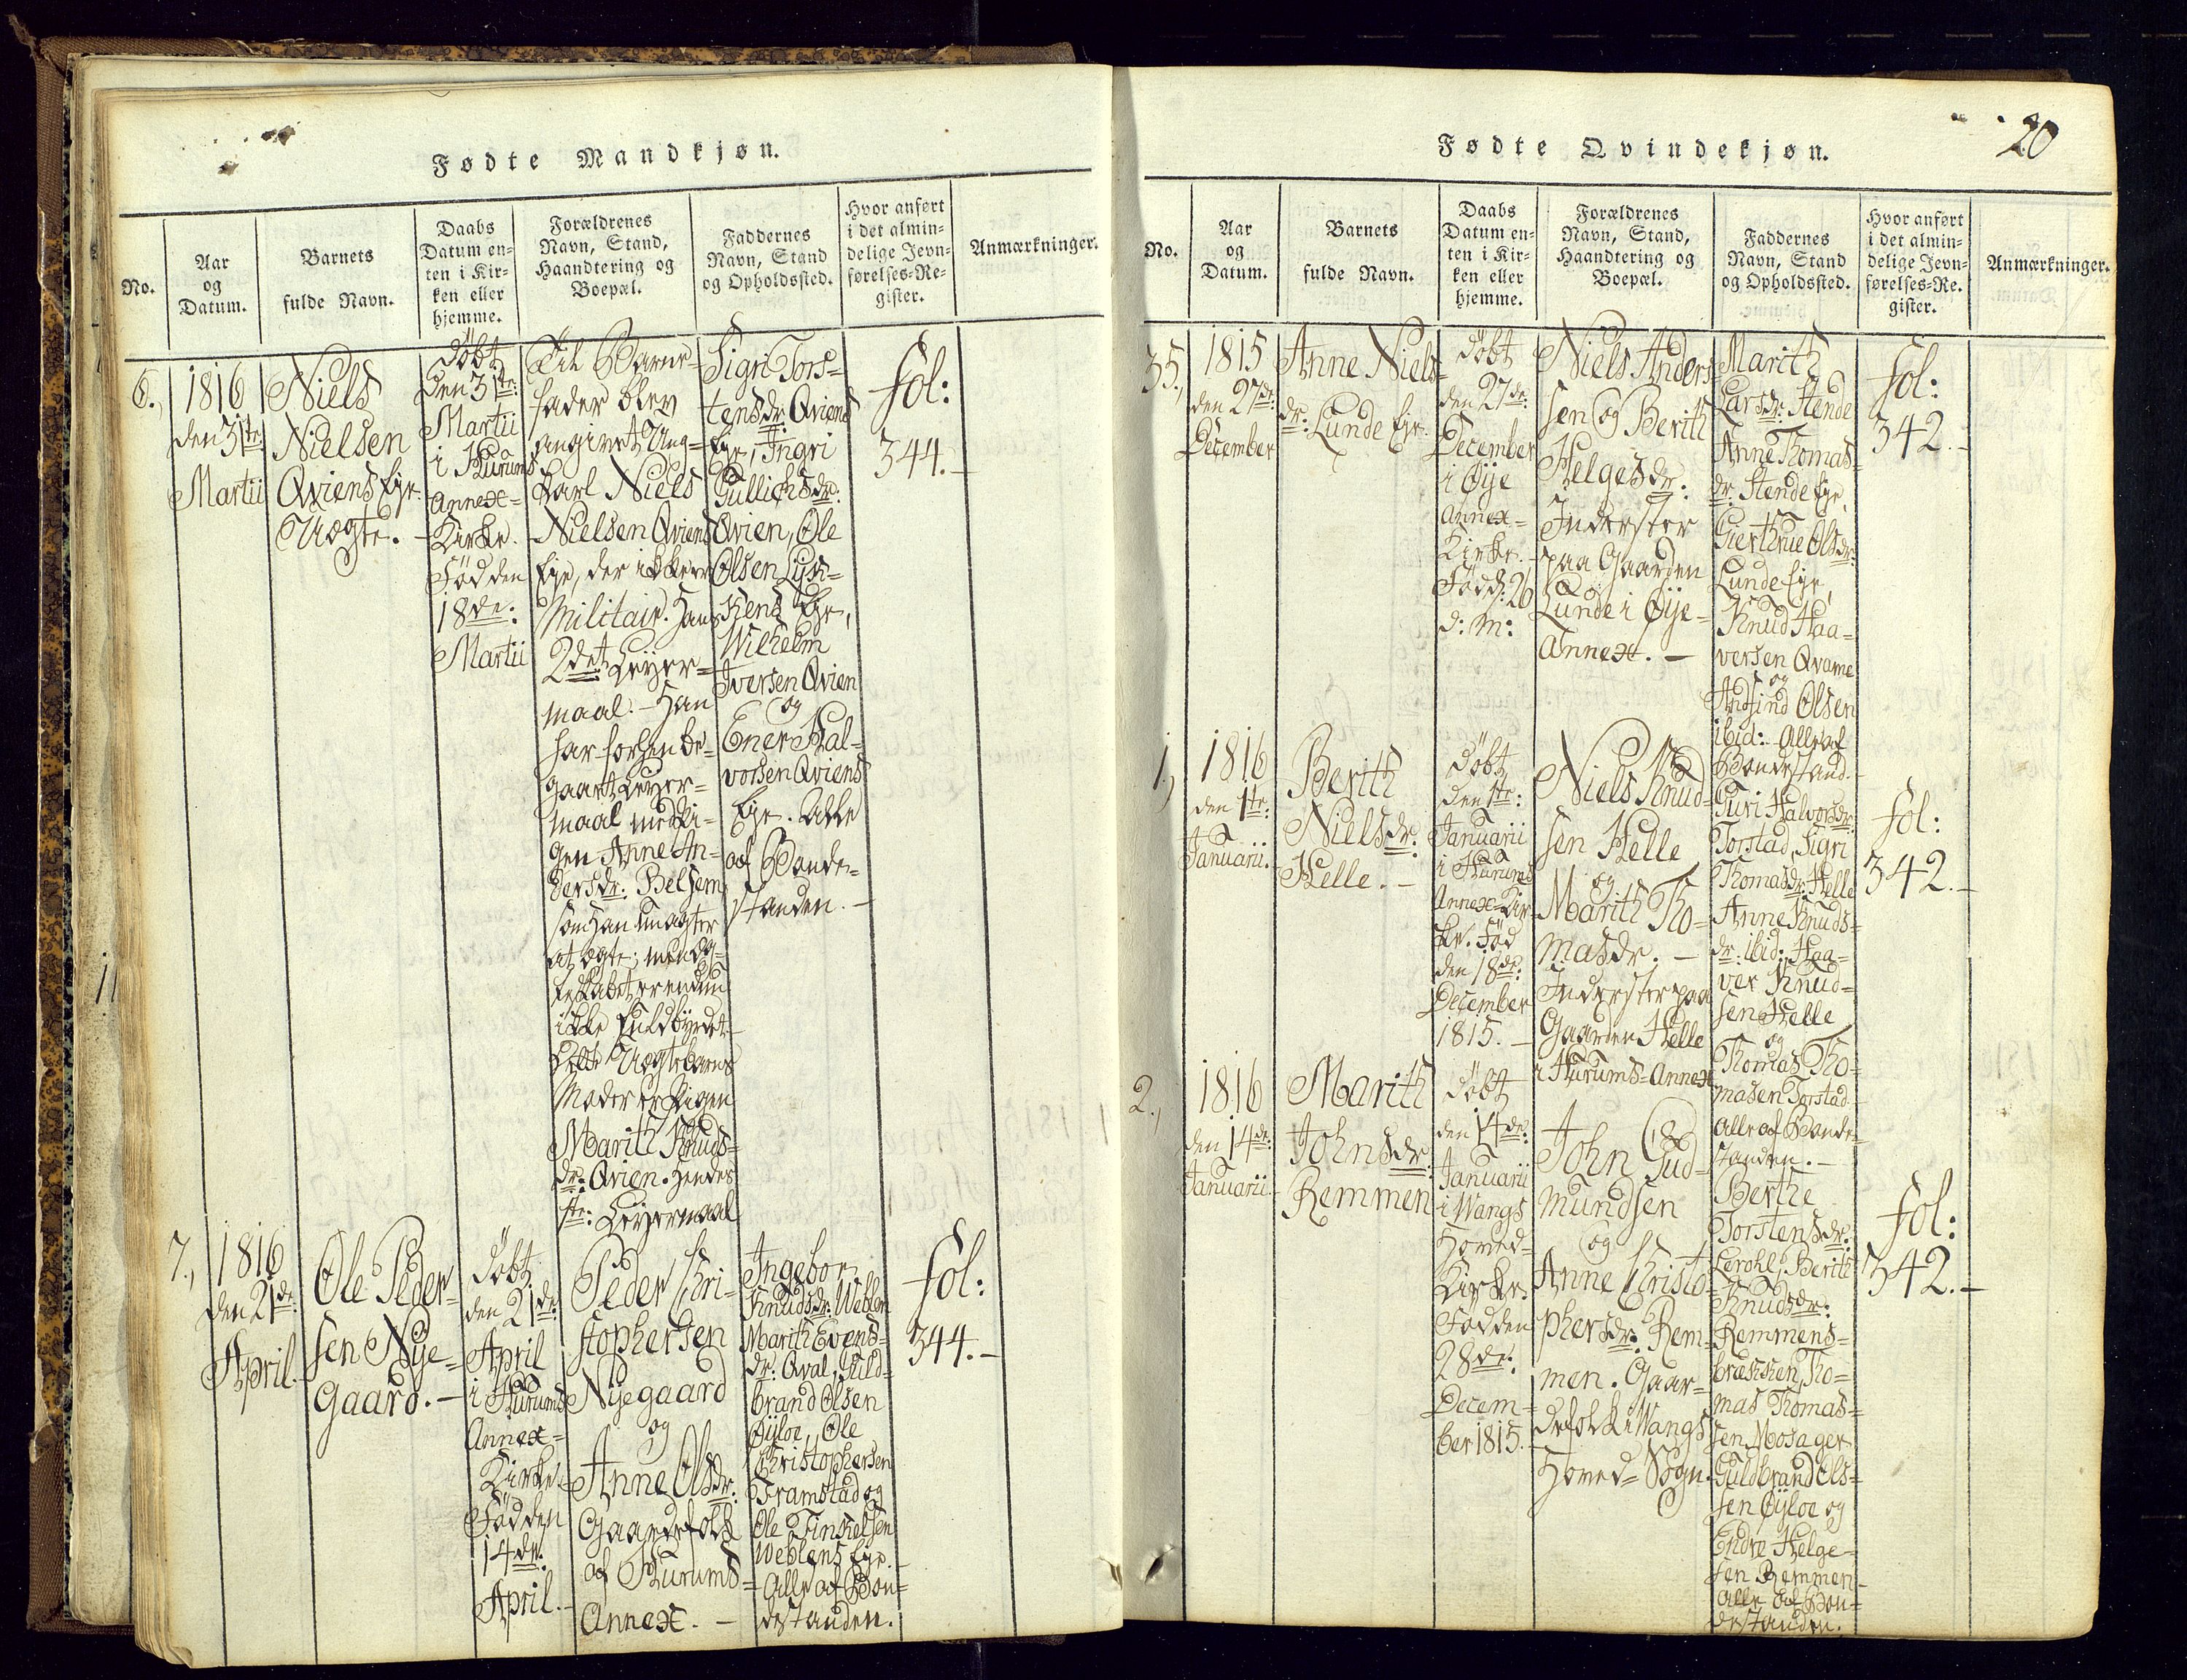 Fødte Mandkjøn.
No.
Aar
og
Datum.
Barnets
fulde Navn.
Daabs
Datum en-
ten i Kir-
ken eller
hjemme.
Forældrenes
Navn, Stand,
Haandtering og
Boepæl.
Faddernes
Navn, Stand
og Opholdssted.
Hvor anført
i det almin-
delige Jevn-
førelses-Re-
gister.
Anmærkninger.
6.,
1816
den 31te:
Martii
Niels
Nielsen
Qviens Eje.
Uægte. -
döbt
den 31te:
Martii
i Hurums
Annex=
Kirke.
Föd den
18de:
Martii
Til Barne-
fader blev
angivet Ung=
karl Niels
Nielsen Qviens
Eje, der ikke er
Militair. Hans
2det Leyer=
maal. - Han
har forhen be-
gaaet Leyer=
maal med Pi-
gen Anne An-
dersdr: Belsem
som han agter
at ægte; men Æg-
teskabet er endnu
ikke fuldbyrdet. -
Dette Uægte barns
Moder er Pigen
Marith Knuds=
dr: Qvien. Hendes
1ste: Leyermaal
Sigri Tors-
tensdr: Qviens
Eje, Ingri
Gullichsdr:
Qvien, Ole
Olsen
Eje,
Wilhelm
Iversen Qvien
og
Ener Hal-
vorsen Qviens
Eje. Alle
af Bonde-
standen. -
fol:
344. -
7.,
1816
den 21de:
April
Ole Peder-
sen Nye-
Gaard. -
döbt
den 21de:
April
i Hurums
Annex=
Kirke.
Föd den
14de:
April. -
Peder Chri-
stophersen
Nyegaard
og
Anne Olsdr:
Gaardefolk
af Hurums=
Annex. -
Ingebor
Knudsdr: Weblen
Marith Evens=
dr: Qval, Guld-
brand Olsen
Øyloe, Ole
Christophersen
Framstad og
Ole Finkelsen
Weblens Eje. -
Alle af Bon-
destanden.
fol:
344. -
Fødte Qvindekjøn.
20
No.
Aar
og
Datum.
Barnets
fulde Navn.
Daabs
Datum en-
ten i Kir-
ken eller
hjemme.
Forældrenes
Navn, Stand,
Haandtering og
Boepæl.
Faddernes
Navn, Stand
og Opholdssted.
Hvor anført
i det almin-
delige Jevn-
førelses-Re-
gister.
Anmærkninger.
35.,
1815
den 27de:
December
Anne Niels-
dr: Lunde Eje.
döbt
den 27de:
December
i Øye
Annex=
Kirke.
Föd d: 26
d: M:
Niels Anders-
sen og Berith
Helgesdr:
Inderster
paa Gaarden
Lunde i Øye-
Annex. -
Marith
Larsdr: Stende
Anne Thomas-
dr: Stende Eje,
Gierthrue Olsdr:
Lunde Eje,
Knud Haa-
versen Qvame
og
Andfind Olsen
ibid: - Alle af
Bondestand. -
fol:
342. -
1.,
1816
den 1te:
Januarii. -
Berith
Nielsdr:
Helle. -
döbt
den 1te:
Januarii
i Hurums
Annex=Kir-
ke. Föd
den 18de:
December
1815. -
Niels Knud-
sen Helle
og
Marith Tho-
masdr. -
Inderster paa
Gaarden Helle
i Hurums=Annex
Guri Halvorsdr:
Torstad, Sigri
Thomasdr: Helle
Anne Knuds=
dr: ibid: Haa-
ver Knud-
sen Helle
og
Thomas Tho-
masen Torstad. -
Alle af Bonde-
standen. -
fol:
342. -
2.,
1816
den 14de:
Januarii. -
Marith
Johnsdr:
Remmen
döbt
den 14de:
Januarii
i Wangs
Hoved-
Kirke.
Föd den
28de:
Decem-
ber 1815. -
John Gud-
mundsen
og
Anne Christo-
phersdr: Rem-
men. Gaar-
defolk i Wangs
Hoved=Sogn.
Berthe
Torstensdr:
Lerohl, Berith
Knudsdr:
Remmens-
brækken, Tho-
mas Thomas-
sen Mosager
Guldbrand Ols-
sen Øyloe og
Endre Helge-
sen Remmen
Alle af Bon-
destanden.
fol:
342. -